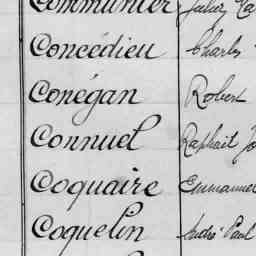 Communier Jules
Concédieu Charles
Conégan Robert
Connuel Raphaël
Coquaire Emmanuel
Coquelin André Paul